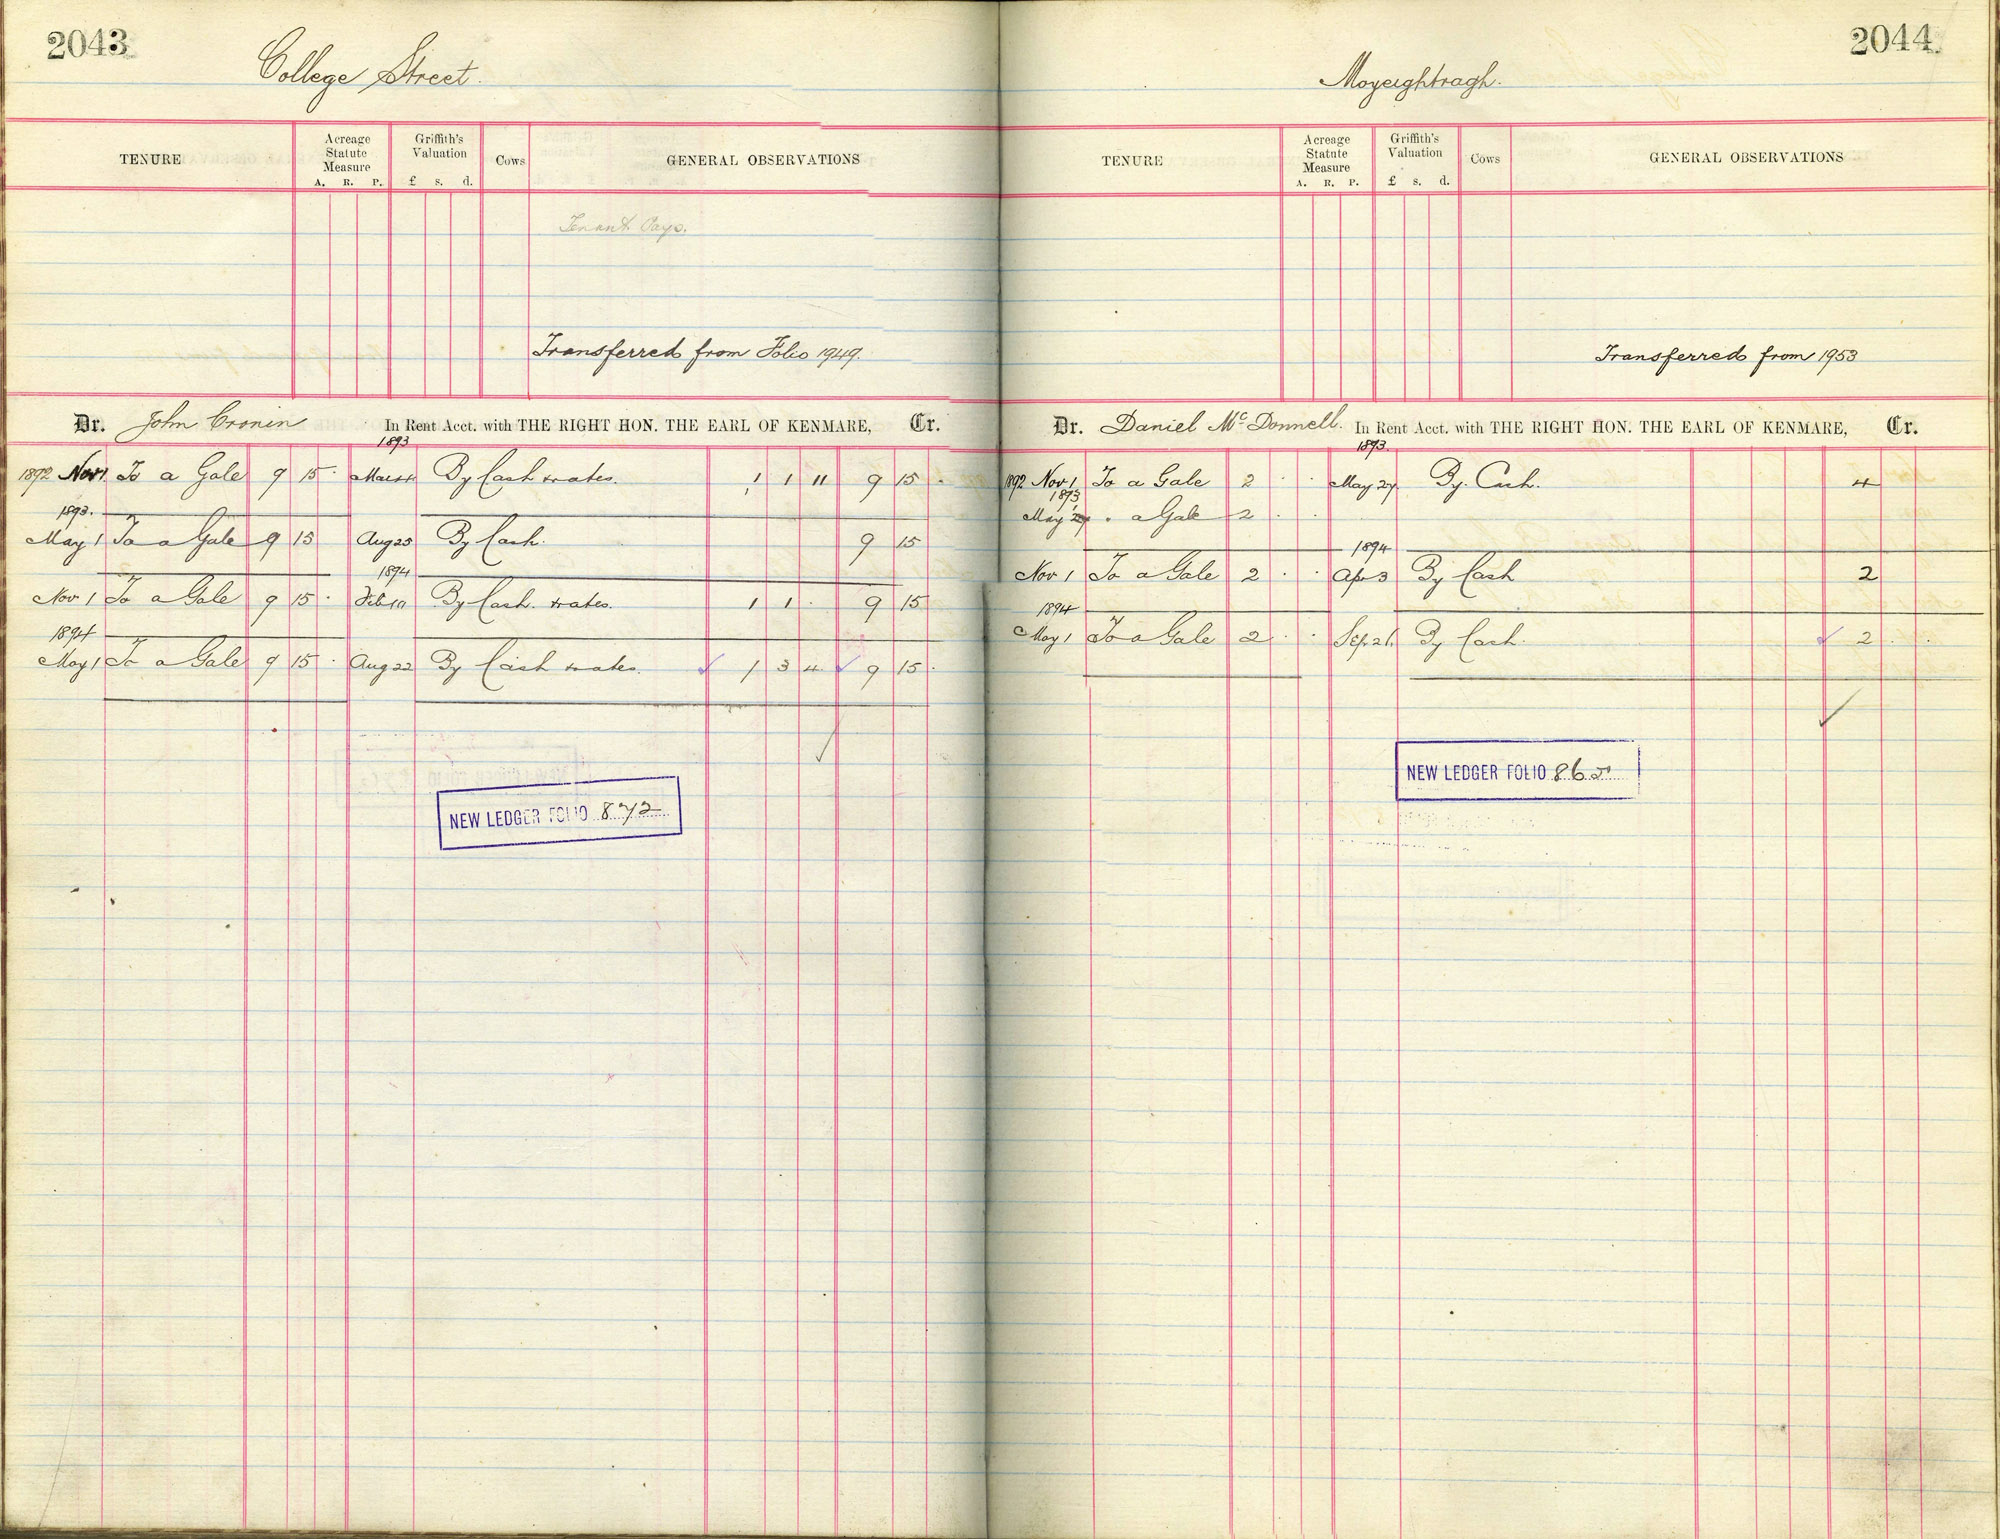 2043
College Street.
TENURE
Acreage Statute Measure
A. R. P.
Griffith's Valuation
£ s. d.
Cows
GENERAL OBSERVATIONS
Tenant Pays.
Transferred from Folio 1949.
Dr. John Cronin In Rent Acct. with THE RIGHT HON. THE EARL OF KENMARE, Cr.
1893
1892 Nov 1 To a Gale 9 15 · By Cash & rates. 1 1 11 9 15 ·
1893.
May 1 To a Gale 9 15 Aug 25 By Cash. 9 15
1894
Nov 1 To a Gale 9 15 · Feb By Cash. & rates. 1 1 · 9 15
1894
May 1 To a Gale 9 15 · Aug 22 By Cash & rates. 1 3 4 9 15 ·
NEW LEDGER FOLIO 872
2044
Moyeightragh.
TENURE
Acreage Statute Measure
A. R. P.
Griffith's Valuation
£ s. d.
Cows
GENERAL OBSERVATIONS
Transferred from 1953
Dr. Daniel McDonnell. In Rent Acct. with THE RIGHT HON. THE EARL OF KENMARE, Cr.
1893.
1892 Nov 1 To a Gale 2 · · May 27. By Cash. 4
1893
May " a Gale 2 · ·
1894
Nov 1 To a Gale 2 · · Apr 3 By Cash 2
1894
May 1 To a Gale 2 · · Sep. 21. By Cash. 2 · ·
NEW LEDGER FOLIO 865